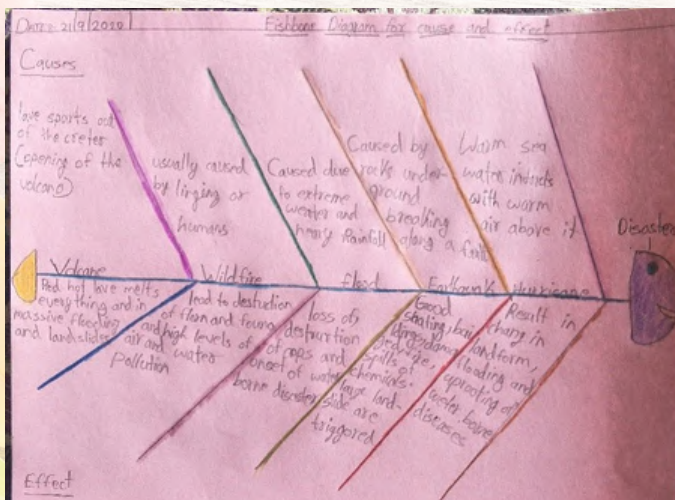 Date: 21/9/2020
Fishbone Diagram for cause and effect
Causes
lave sports out
of the creter
(opening of the
volcano)
usually caused
by linging or
humans
Caused due
to extreme
weater and
heavy Rainfall
Caused by
rocks under-
ground
breaking
along a
Warm sea
water intracts
with warm
air above it
Disaster
Volcano
Wildfire
flood
Hurricane
Red hot lave melts
everything and in
massive flooding
and landslides
lead to destruction
of flora and
and high levels of
air and water
pollution
loss of
destruction
of crops and
onset of water
borne disaster
spills of
chemicals.
large land-
slide are
triggered
Result in
chang in
landform,
flooding and
uprooting of
water borne
diseases
Effect